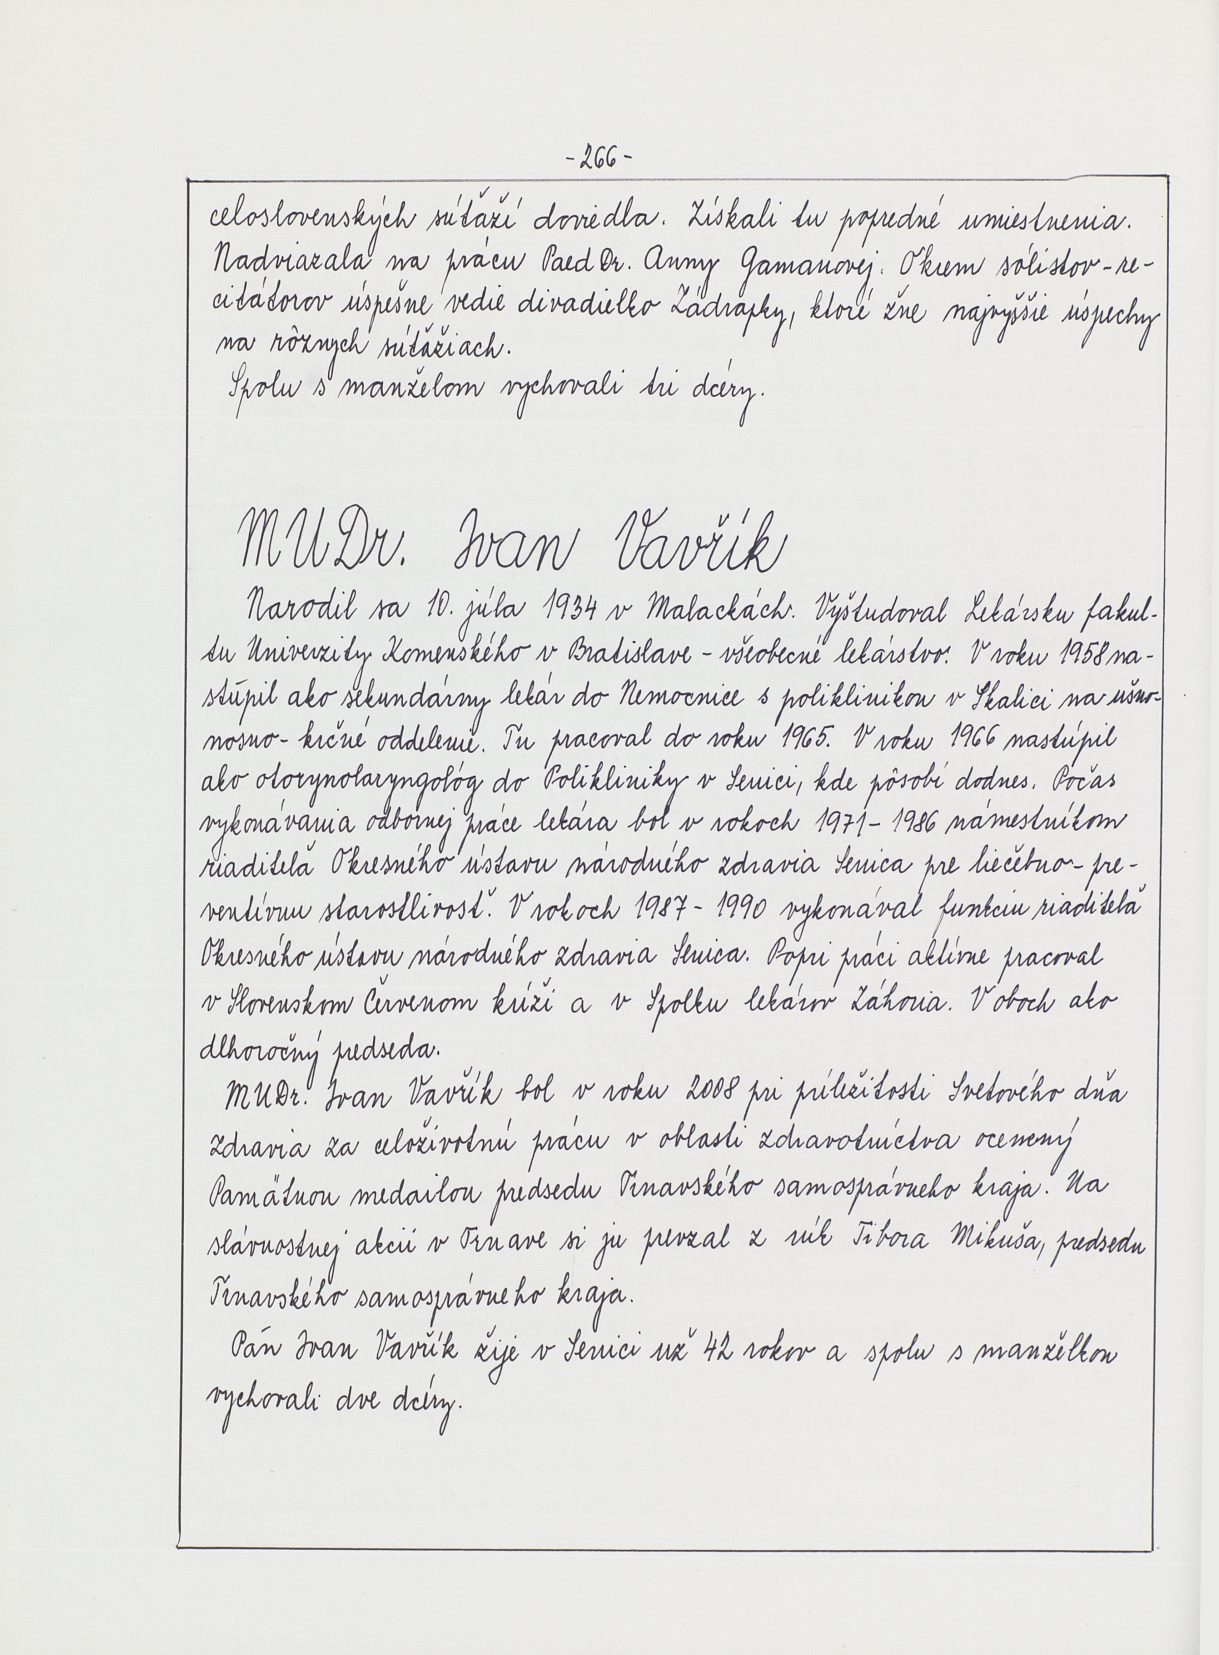 -266-
celoslovenských súťaží doviedla. Získali tu popredné umiestnenia.
Nadviazala na prácu PaedDr. Anny Gamanovej. Okrem sólistov-re-
citátorov úspešne vedie divadielko Zádrapky, ktoré žne najvyššie úspechy
na rôznych súťažiach.
Spolu s manželom vychovali tri dcéry.
MUDr. Ivan Vavřík
Narodil sa 10. júla 1934 v Malackách. Vyštudoval Lekársku fakul-
tu Univerzity Komenského v Bratislave - všeobecné lekárstvo. V roku 1958 na-
stúpil ako sekundárny lekár do Nemocnice s poliklinikou v Skalici na ušno-
nosno-krčné oddelenie. Tu pracoval do roku 1965. V roku 1966 nastúpil
ako otorynolaryngológ do Polikliniky v Senici, kde pôsobí dodnes. Počas
vykonávania odbornej práce lekára bol v rokoch 1971-1986 námestníkom
riaditeľa Okresného ústavu národného zdravia Senica pre liečebno-pre-
ventívnu starostlivosť. V rokoch 1987-1990 vykonával funkciu riaditeľa
Okresného ústavu národného zdravia Senica. Popri práci aktívne pracoval
v Slovenskom Červenom kríži a v Spolku lekárov Záhoria. V oboch ako
dlhoročný predseda.
MUDr. Ivan Vavřík bol v roku 2008 pri príležitosti Svetového dňa
zdravia za celoživotnú prácu v oblasti zdravotníctva ocenený
Pamätnou medailou predsedu Trnavského samosprávneho kraja. Na
slávnostnej akcii v Trnave si ju prevzal z rúk Tibora Mikuša, predsedu
Trnavského samosprávneho kraja.
Pán Ivan Vavřík žije v Senici už 42 rokov a spolu s manželkou
vychovali dve dcéry.